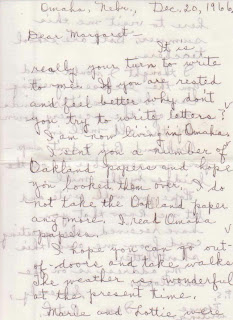 Omaha, Nebr., Dec. 20, 1966
Dear Margaret—
It is
really your turn to write
to me. If you are rested
and feel better why don't
you try to write letters?
I am now living in Omaha.
I sent you a number of
Oakland papers and hope
you looked them over. I do
not take the Oakland paper
any more. I read Omaha
papers.
I hope you can go out-
of-doors and take walks.
The weather is wonderful
at the present time.
Marie and Lottie were